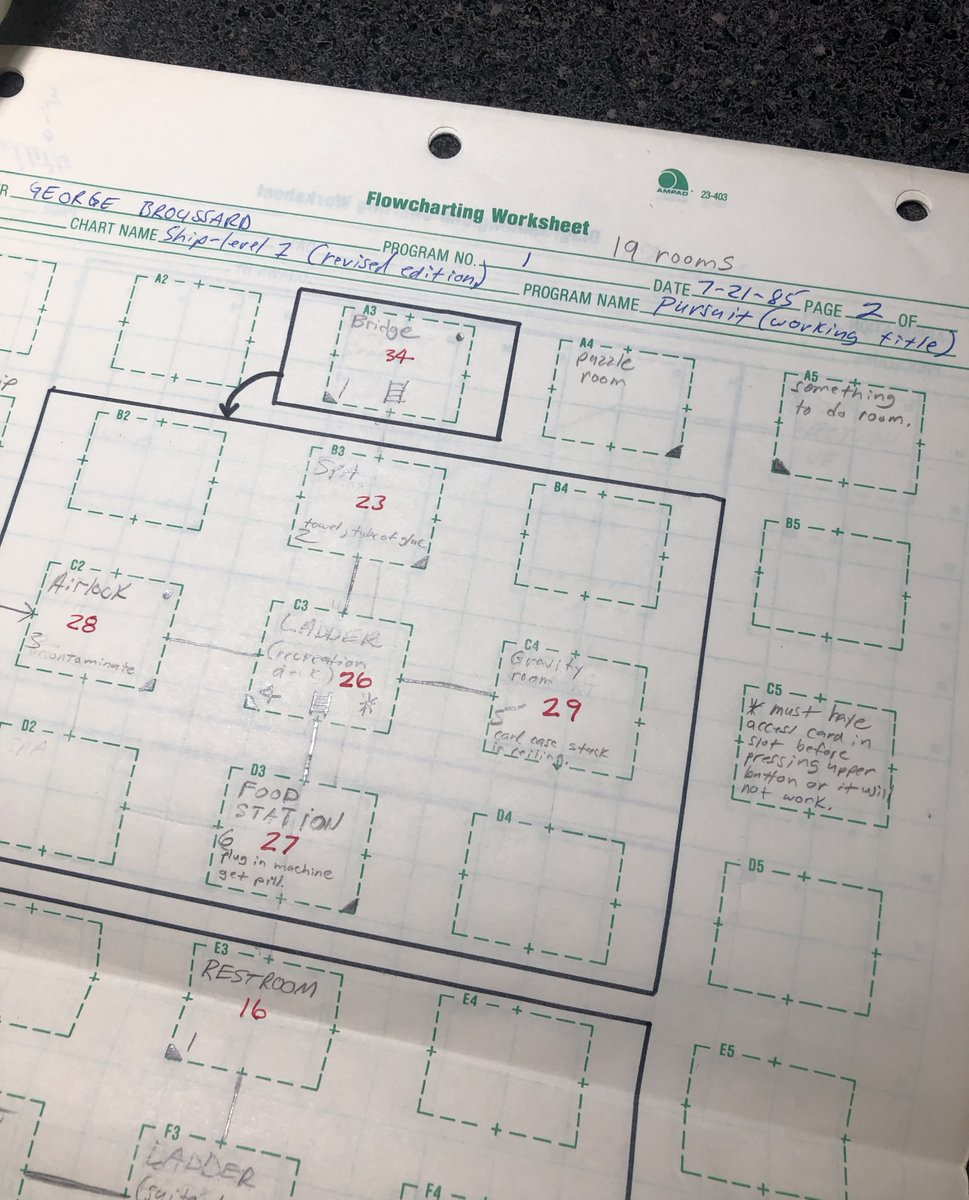 Flowcharting Worksheet
AMPAD
23-403
GEORGE BROUSSARD
PROGRAM NO. 1
19 rooms
CHART NAME Ship-level 1 (revised edition)
DATE 7-21-85 PAGE 2 OF
PROGRAM NAME Pursuit (working title)
A2
A3
Bridge
34
1
A4
puzzle
room
A5
something
to do room.
B2
B3
SPA
23
towel, tube of glue
2
B4
B5
C2
Airlock
28
3
decontaminate
C3
LADDER
(recreation
deck) 26
4 *
C4
Gravity
room
29
5
card case stuck
in ceiling.
C5
* must have
access card in
slot before
pressing upper
button or it will
not work.
D2
SPA
D3
FOOD
STATION
27
6
plug in machine
get pill.
D4
D5
E3
RESTROOM
16
1
E4
E5
F3
LADDER
F4